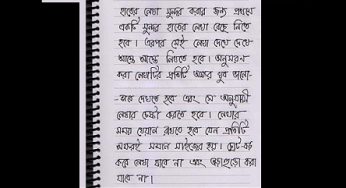 হাতের লেখা সুন্দর করার জন্য প্রথমে
একটি সুন্দর হাতের লেখা বেছে নিতে
হবে। এরপর সেই লেখা দেখে দেখে
আস্তে আস্তে লিখতে হবে। অনুসরণ
করা লেখাটির প্রতিটি অক্ষর খুব ভালো-
-ভাবে দেখতে হবে এবং সে অনুযায়ী
লেখার চেষ্টা করতে হবে। লেখার
সময় খেয়াল রাখতে হবে যেন প্রতিটি
অক্ষরই সমান সাইজের হয়। ছোট-বড়
করে লেখা যাবে না এবং তাড়াহুড়ো করা
যাবে না।